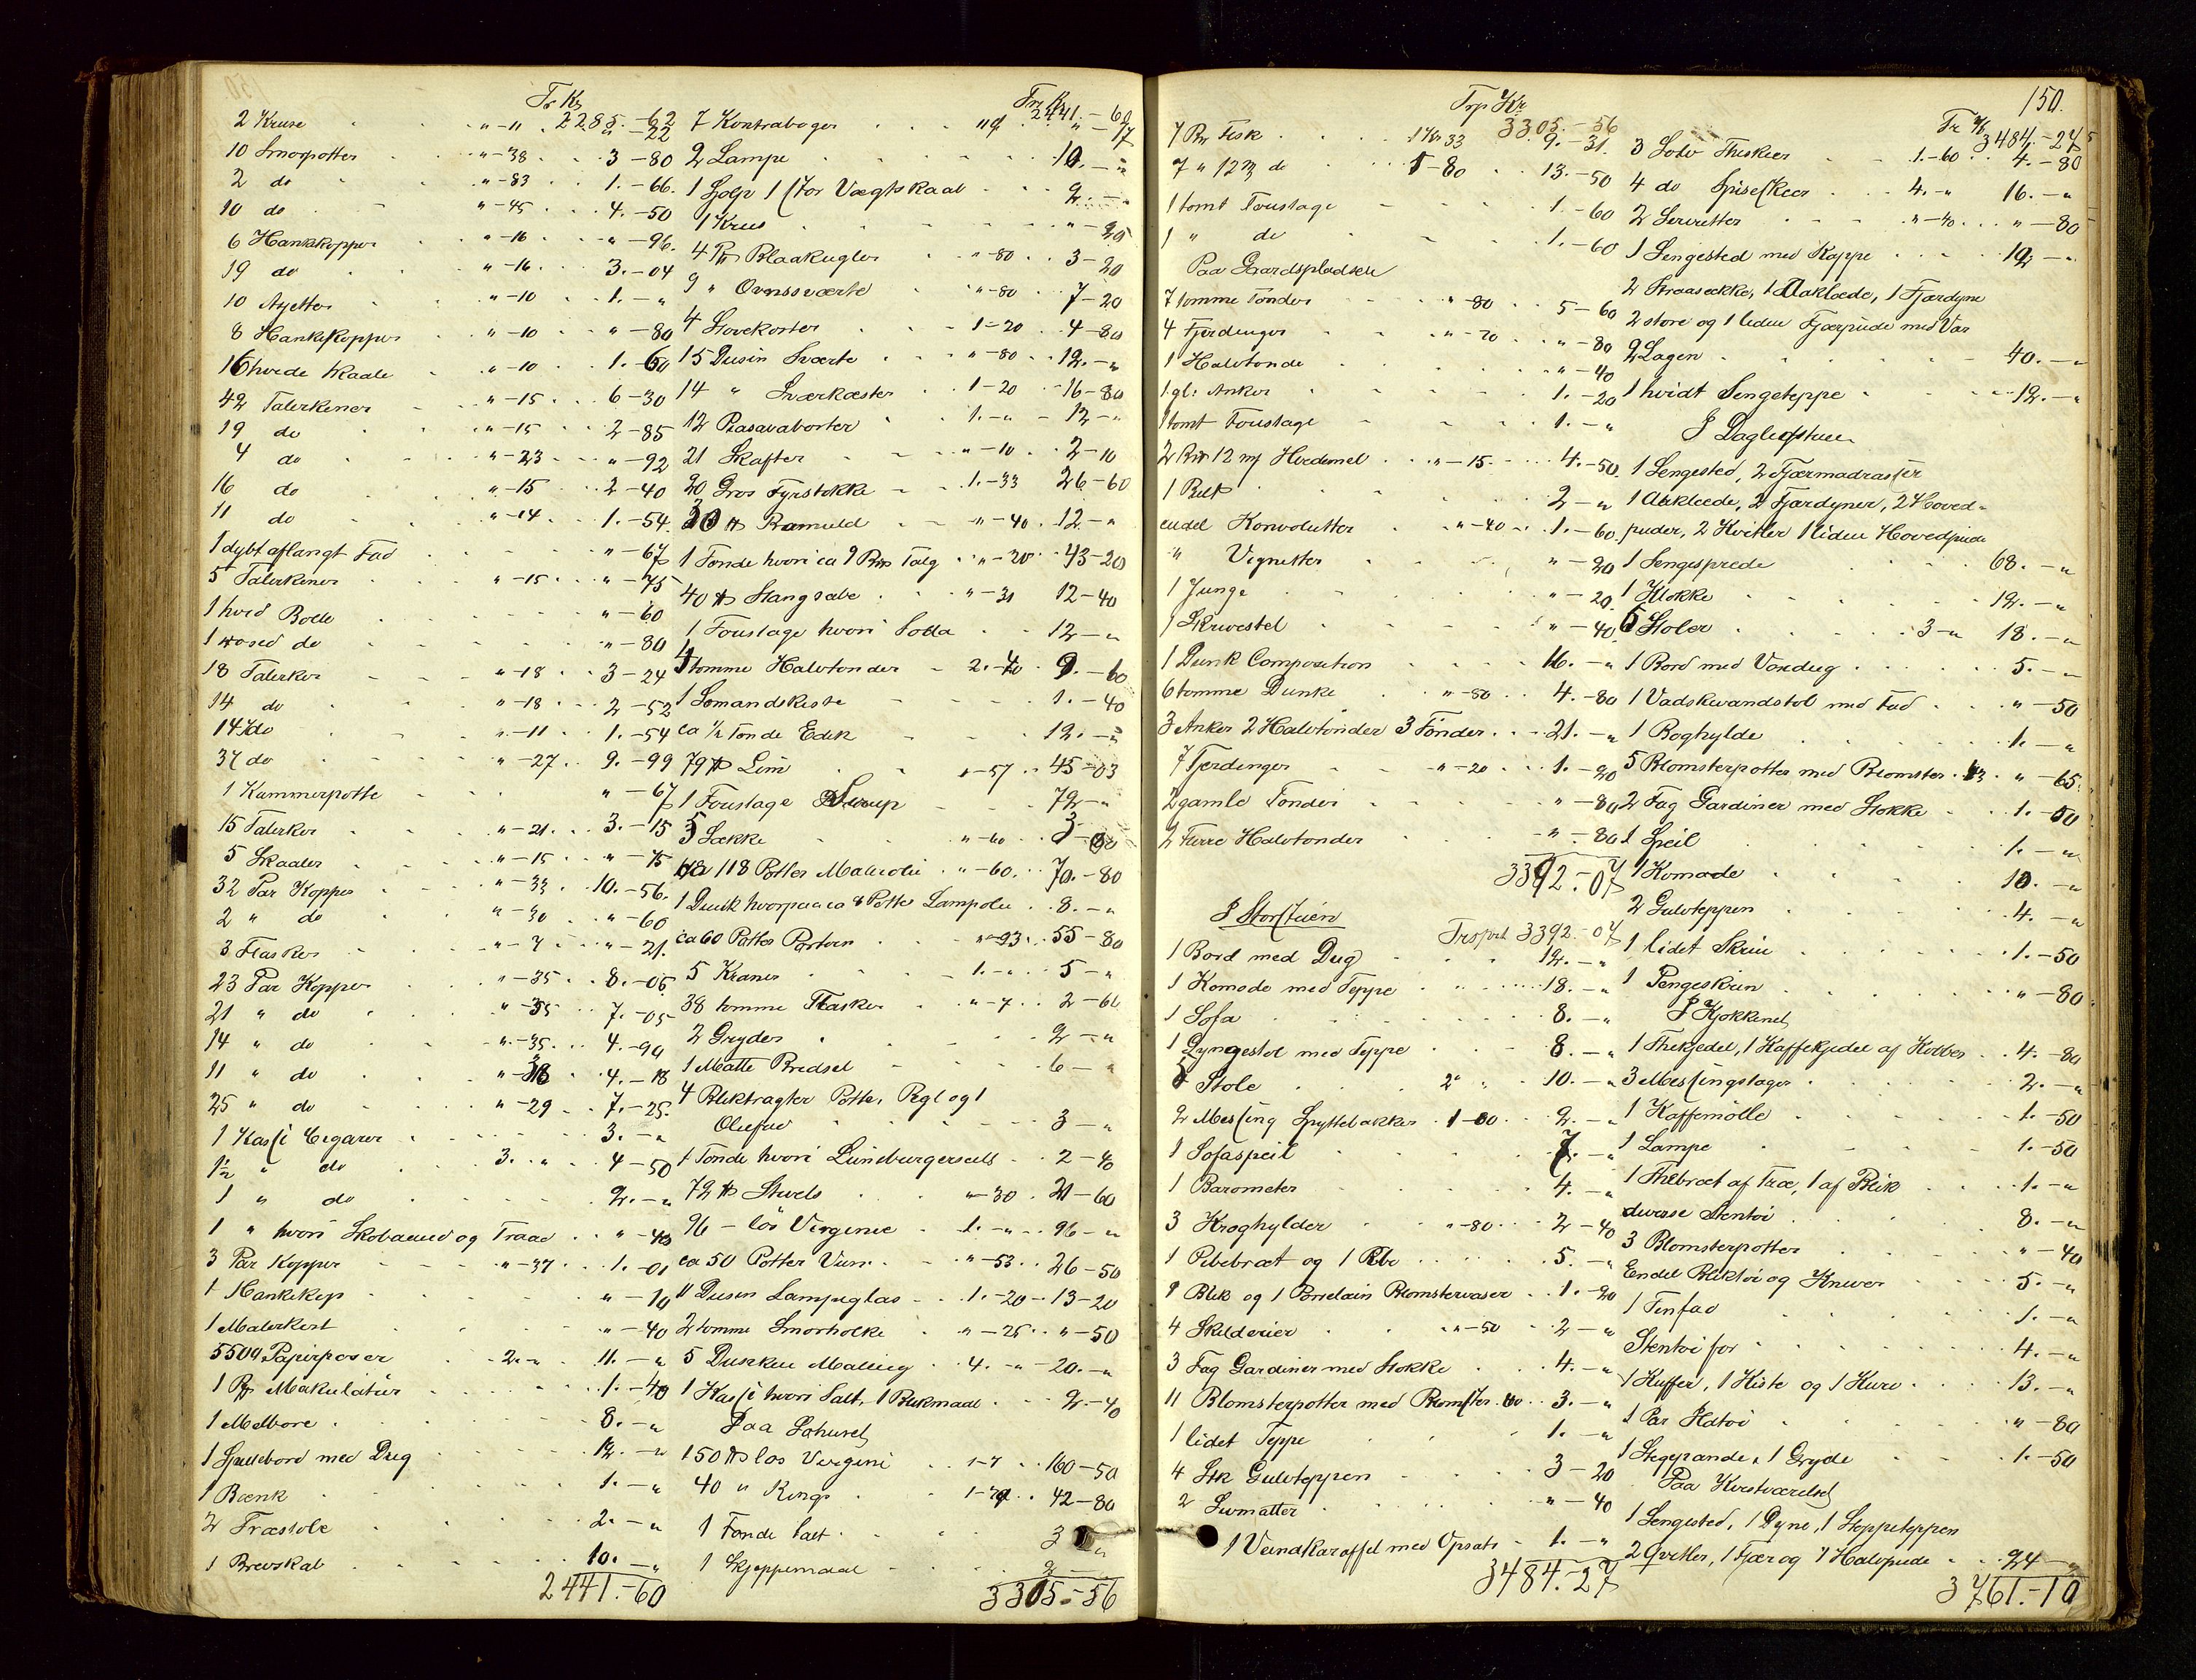 Tr Kr 2285.-62
2 Kruse " -11 " -22
10 Smørpotter " -38 3 -80
2 do " -83 1.-66.
10 do " -45 4.-50
6 Hankekopper " -16 " -96.
19 do " -16 3.-04
10 Asjetter " -10 1.- "
8 Hankekopper " -10 " -80
16 hvide Skaale " -10 1.-60
42 Talerkener " -15 6-30
19 do " -15 2-85
4 do " -23 " -92
16 do " -15 2-40
11 do " -14 1.-54
1 dybt aflangt Fad " -67
5 Talerkener " -15 " -75
1 hvid Bolle " -60
1 rosed do " -80
18 Talerker " -18 3-24
14 do " -18 2-52
14 do " -11 1.-54
37 do " -27 9.-99
1 Kammerpotte " -67
15 Talerker " -21 3.-15
5 Skaaler " -15 " -75
32 Par Kopper " -33 10.-56.
2 " do " -30 " -60
3 Flasker " -7 " -21.
23 Par Kopper " -35 8.-05
21 " do " -35 7.-05
14 " do " -35 4.-90
11 " do " -38 4.-18
25 " do " -29 7.-25.
1 Kasse Cigarer 3.- "
1½ " do 3. " 4-50
1 " do 2.- "
1 " hvori Skobaand og Traad " -40
3 Par Kopper " -37 1.-01
1 Hankekop " -10
1 Malerkost " -40
5500 Papirposer 2.- " 11.- "
1 Rp Makulatur 1.-40
1 Melbøre 8.- "
1 Spillebord med Dug 12.- "
1 Bænk 1.- "
2 Træstole 2.- "
1 Brevskab 10.- "
2441.-60
Trp Kr 2441.-60
7 Kontrabøger " -17
2 Lampe 10.- "
1 Sølje 1 stor Vægtskaal 2.- "
1 Krus " -20
4 ℔ Blaakugler " -80 3-20
9 " Ovnssværte " -80 7-20
4 Stovekoster 1-20 4-80
15 Dusin Sværte " -80 12.- "
14 " Sværkæster 1-20 16-80
12 Piasavaborster 1.- " 12- "
21 Skafter " -10 2-10
20 Gros Fyrstokke 1.-33 26-60
30 ℔ Bomuld " -40 12- "
1 Tønde hvori ca 9 Bpd Talg " -20 43-20
40 ℔ Stangsæbe " -31 12-40
1 Foustage hvori Soda 12- "
4 tomme Halvtønder 2.-40 9.-60
1 Sømandskiste 1.-40
ca ½ Tønde Edik 12.- "
79 ℔ Lim " -57 45-03
1 Foustage Sirup 72- "
5 Sække " -60 3-00
ca 118 Potter Malerolie " -60 70.-80
1 Dunk hvorpaa ca 8 Potter Lampolie 8.- "
ca 60 Potter Portvin " -93 55-80
5 Kraner 1.- " 5- "
38 tomme Flasker " -7 2-66
2 Gryder 2- "
1 Matte Bredsel 6- "
4 Bliktragter Potte, Pegl og 1
Oliefad 3- "
1 Tønde hvori Lüneburgersalt 2-40
72 ℔ Stivels " -30 21-60
96 - løs Virginie 1.- " 96- "
ca 50 Potter Viin " -53 26-50
11 Dusin Lampeglas 1.-20 13-20
2 tomme Smørholke " -25 " -50
5 Dunken Maling 4.- " 20.- "
1 Kasse hvori Salt, 1 Blikmaal 2.-40
Paa Søhuset
150 ℔ løs Virgini 1-7 160-50
40 " Rings 1-7 42-80
1 Tønde Salt 3 "
1 Skjeppemaal 2
3305.-56
150.
Trp Kr 3305.-56
7 Bpd Fisk 1 Kr 33 9.-31.
7 " 12 ℔ do 1-80 13.-50
1 tomt Foustage 1.-60
1 " do 1.-60
Paa Gaardspladsen
7 tomme Tønder " -80 5-60
4 Fjerdinger " -20 " -80
1 Halvtønde " -40
1 gl: Anker 1.-20
1 tomt Foustage 1.- "
2 Bpd 12 ℔ Hvedemel " -15 4.-50
1 Pult 2- "
endel Konvolutter " -40 1.-60
" Vignetter " -20
1 Junge " -20
1 Skrivestel " -40
1 Dunk Composition 16.- "
6 tomme Dunke " -80 4.-80
3 Anker 2 Halvtønder 3 Tønder 21.- "
7 Fjerdinger " -20 1.-20
2 gamle Tønder " -80
2 Tjære Halvtønder " -80
3392.-07
I Storstuen
Trsprt 3392.-07
1 Bord med Dug 12.- "
1 Komode med Teppe 18.- "
1 Sofa 8.- "
1 Gyngestol med Teppe 8.- "
5 Stole 2 " 10.- "
2 Messing Spyttebakker 1-00 2.- "
1 Sofaspeil 7.- "
1 Barometer 4.- "
3 Kroghylder " -80 2-40
1 Pibebræt og 1 Pibe 5.- "
2 Blik og 1 Porcelain Blomstervaser 1.-20
4 Skilderier " -50 2- "
3 Fag Gardiner med Stokke 4.- "
11 Blomsterpotter med Blomster 3.- "
1 lidet Teppe 1.- "
4 Stk Gulvteppen 3-20
2 Sivmatter " -40
1 Vandkaraffel med Opsats 1.- "
3484.-27
Tr Kr 3484.-27
3 Sølv Theskeer 1.-60 4.-80
4 do Spiseskeer 4.- " 16.- "
2 Servietter " -40 " -80
1 Sengested med Kappe 12- "
2 Straasekke, 1 Aaklæde, 1 Fjærdyne
2 store og 1 liden Fjærpude med Var
2 Lagen 40.- "
1 hvidt Sengeteppe 12.- "
I Dagligstuen
1 Sengested, 2 Fjærmadrasser
1 Aaklæde, 2 Fjærdyner, 2 Hoved-
puder, 2 Hvitler 1 liden Hovedpude
1 Sengesprede 68.- "
1 Klokke 12.- "
6 Stoler 3- " 18.- "
1 Bord med Voxdug 5.- "
1 Vadskevandstol med Fad " -50
1 Boghylde 1.- "
5 Blomsterpotter med Blomster 13 " -65
2 Fag Gardiner med Stokke 1.-50
1 Speil 1.- "
1 Komode 10.- "
2 Gulvteppen 4.- "
1 lidet Skrin 1.-50
1 Pengeskrin " -80
I Kjøkkenet
1 Thekjedel, 1 Kaffekjedel af Kobber 4.-80
3 Messingstager 2.- "
1 Kaffemølle 1.-50
1 Lampe 1.-50
1 Thebræt af Træ, 1 af Blik 1.- "
diverse Stentøi 8.- "
3 Blomsterpotter " -40
Endel Bliktøi og Kniver 5.- "
1 Tinfad 1.- "
Stentøi for 4.- "
1 Kuffer, 1 Kiste og 1 Kurv 13.- "
1 Par Ildtøi " -80
1 Stegepande, 1 Gryde 1.-50
Paa Kvistværelset
1 Sengested, 1 Dyne, 1 Stoppeteppen
2 Qvitler, 1 Fjær og 1 Halvpude 24- "
3761.-10